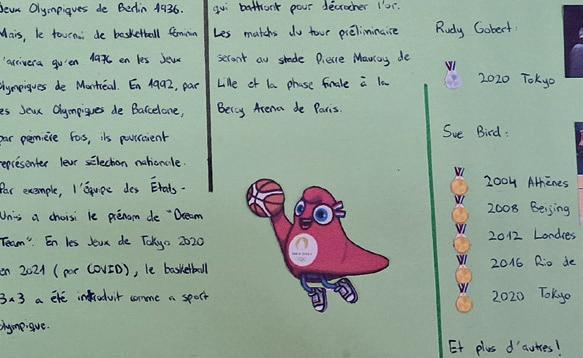 Jeux Olympiques de Berlin 1936.
Mais, le tournoi de basketball féminin
n'arrivera qu'en 1976 en les Jeux
Olympiques de Montréal. En 1992, par
les Jeux Olympiques de Barcelone,
par première fos, ils pourraient
représenter leur sélection nationale.
Par exemple, l'équipe des États-
Unis a choisi le prénom de "Dream
Team". En les Jeux de Tokyo 2020
en 2021 (par COVID), le basketball
3x3 a été introduit comme a sport
olympique.
qui battront pour décrocher l'or.
Les matchs du tour préliminaire
seront au stade Pierre Mauroy de
Lille et la phase finale à la
Bercy Arena de Paris.
Rudy Gobert:
2020 Tokyo
Sue Bird:
2004 Athènes
2008 Beijing
2012 Londres
2016 Rio de
2020 Tokyo
Et plus d'autres!